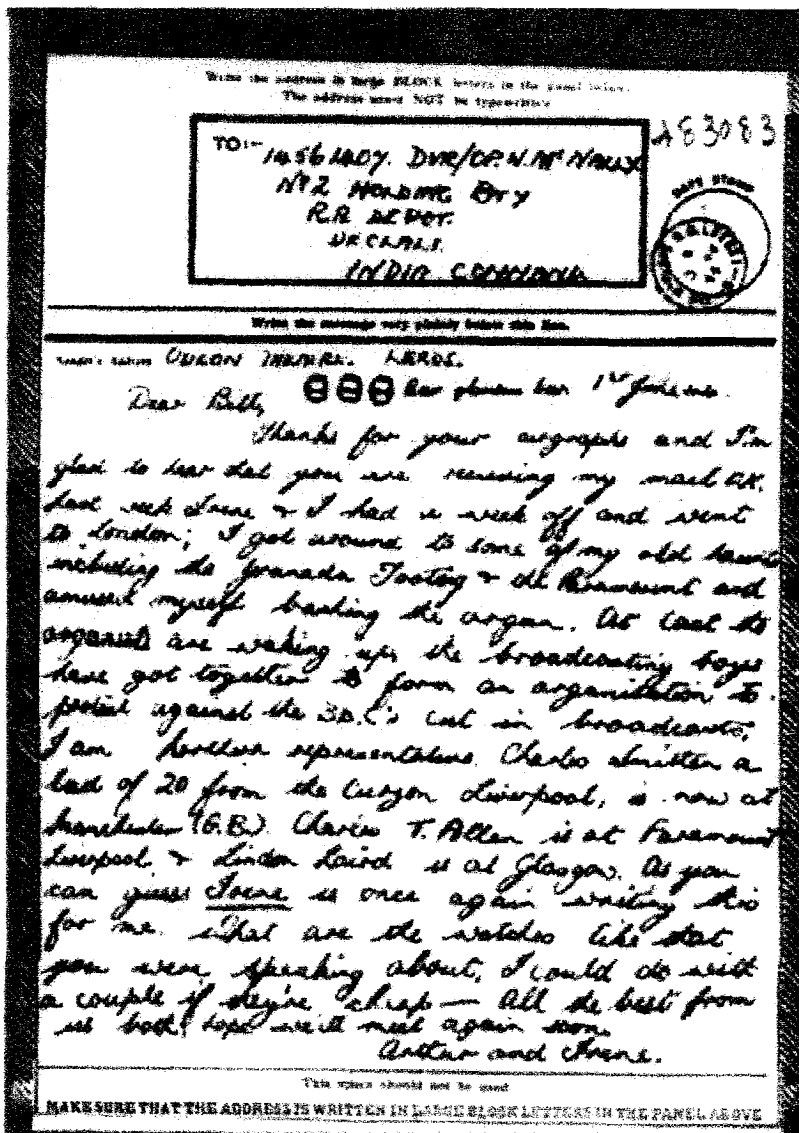 Write the address in large BLOCK letters in the panel below.
The address must NOT be typewritten
TO:- 14561407. DVR/OP. N. McNALLY
No 2 HOLDING BTY
R.A. DEPOT.
DEOLALI.
INDIA COMMAND
183083
DATE STAMP
Write the message very plainly below this line.
ODEON THEATRE. LEEDS.
Dear Bill, 1st June
Thanks for your airgraphs and I'm
glad to hear that you are receiving my mail O.K.
Last week Irene & I had a week off and went
to London; I got around to some of my old haunts
including the Granada Tooting & the Paramount and
amused myself bashing the organ. At last the
organists are waking up, the broadcasting boys
have got together to form an organisation to
protest against the B.B.C's cut in broadcasts,
I am Northern representative. Charles a
lad of 20 from the Curzon Liverpool, is now at
Manchester (G.B.) Charles T. Allen is at Paramount
Liverpool & Lindon Laird is at Glasgow. As you
can guess Irene is once again writing this
for me. What are the watches like that
you were speaking about, I could do with
a couple if they're cheap — All the best from
us both, hope we'll meet again soon.
Arthur and Irene.
This space should not be used
MAKE SURE THAT THE ADDRESS IS WRITTEN IN LARGE BLOCK LETTERS IN THE PANEL ABOVE